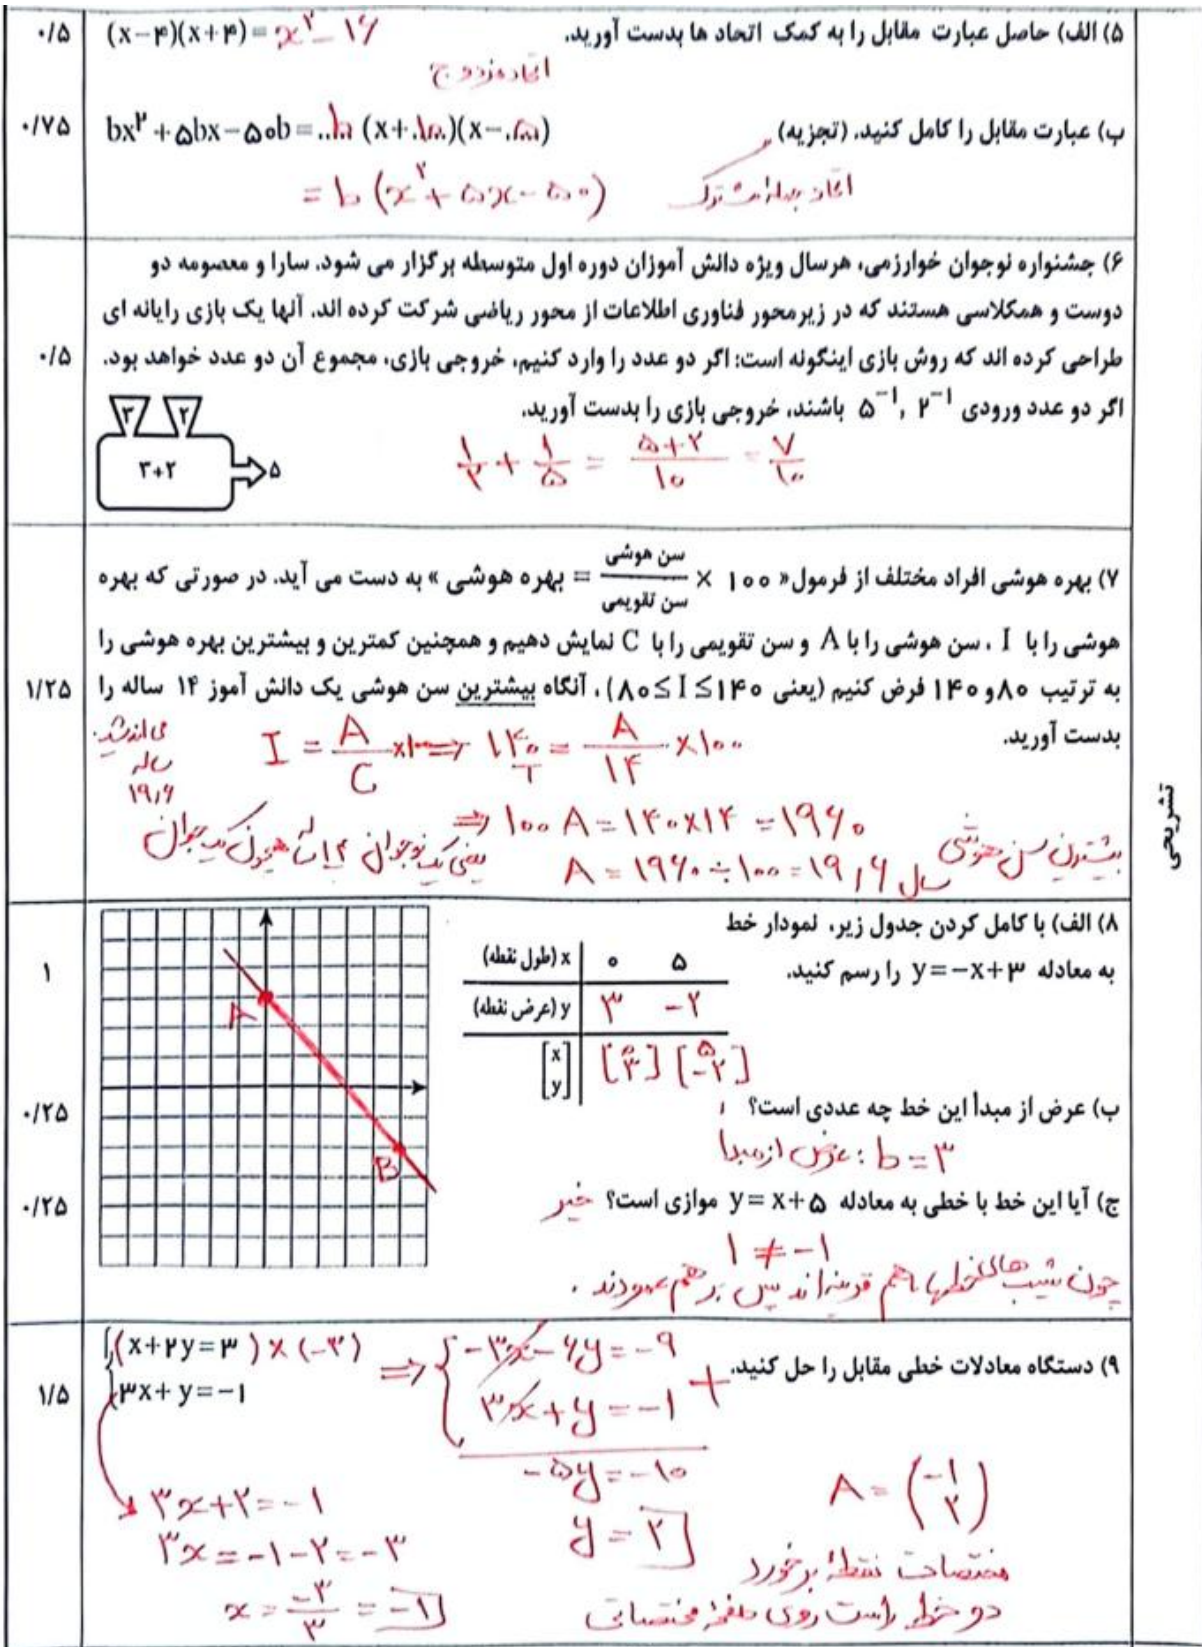 ۵) الف) حاصل عبارت مقابل را به کمک اتحاد ها بدست آورید. (x−۴)(x+۴)= x² − ۱۶ ۰/۵
اتحاد مزدوج
ب) عبارت مقابل را کامل کنید. (تجزیه) bx² + ۵bx − ۵۰b = ..b (x+.۱۰.)(x−.۵.) ۰/۷۵
= b (x² + ۵x − ۵۰) اتحاد جمله مشترک
۶) جشنواره نوجوان خوارزمی، هرسال ویژه دانش آموزان دوره اول متوسطه برگزار می شود. سارا و معصومه دو
دوست و همکلاسی هستند که در زیرمحور فناوری اطلاعات از محور ریاضی شرکت کرده اند. آنها یک بازی رایانه ای
طراحی کرده اند که روش بازی اینگونه است: اگر دو عدد را وارد کنیم، خروجی بازی، مجموع آن دو عدد خواهد بود. ۰/۵
اگر دو عدد ورودی ۲⁻¹ , ۵⁻¹ باشند، خروجی بازی را بدست آورید.
۳ ۲
۳+۲ ۵
۱/۲ + ۱/۵ = (۵+۲)/۱۰ = ۷/۱۰
۷) بهره هوشی افراد مختلف از فرمول« ۱۰۰ × سن هوشی/سن تقویمی = بهره هوشی » به دست می آید. در صورتی که بهره
هوشی را با I ، سن هوشی را با A و سن تقویمی را با C نمایش دهیم و همچنین کمترین و بیشترین بهره هوشی را
به ترتیب ۸۰ و ۱۴۰ فرض کنیم (یعنی ۸۰≤I≤۱۴۰) ، آنگاه بیشترین سن هوشی یک دانش آموز ۱۴ ساله را ۱/۲۵
بدست آورید.
I = A/C ×۱۰۰ ⇒ ۱۴۰/۱ = A/۱۴ ×۱۰۰
⇒ ۱۰۰ A = ۱۴۰×۱۴ = ۱۹۶۰
بیشترین سن هوشی A = ۱۹۶۰ ÷ ۱۰۰ = ۱۹,۶ سال
یعنی یک نوجوان ۱۴ ساله همچون یک جوان
۱۹,۶
ساله
می اندیشد.
تشریحی
۸) الف) با کامل کردن جدول زیر، نمودار خط
به معادله y=−x+۳ را رسم کنید. ۱
x (طول نقطه) ۰ ۵
y (عرض نقطه) ۳ −۲
[x y] [۰ ۳] [۵ −۲]
A
B
ب) عرض از مبدأ این خط چه عددی است؟ ۰/۲۵
عرض از مبدا : b = ۳
ج) آیا این خط با خطی به معادله y= x+۵ موازی است؟ خیر ۰/۲۵
۱ ≠ −۱
چون شیب های خطها باهم قرینه اند پس بر هم عمودند .
۹) دستگاه معادلات خطی مقابل را حل کنید. ۱/۵
{(x+۲y=۳ ) × (−۳) ⇒ { −۳x − ۶y = −۹
۳x+y=−۱ ۳x + y = −۱ +
−۵y = −۱۰
y = ۲
۳x+۲ = −۱
۳x = −۱−۲ = −۳
x = −۳/۳ = −۱
A = (−۱ ۲)
مختصات نقطه برخورد
دو خط راست روی صفحه مختصاتی